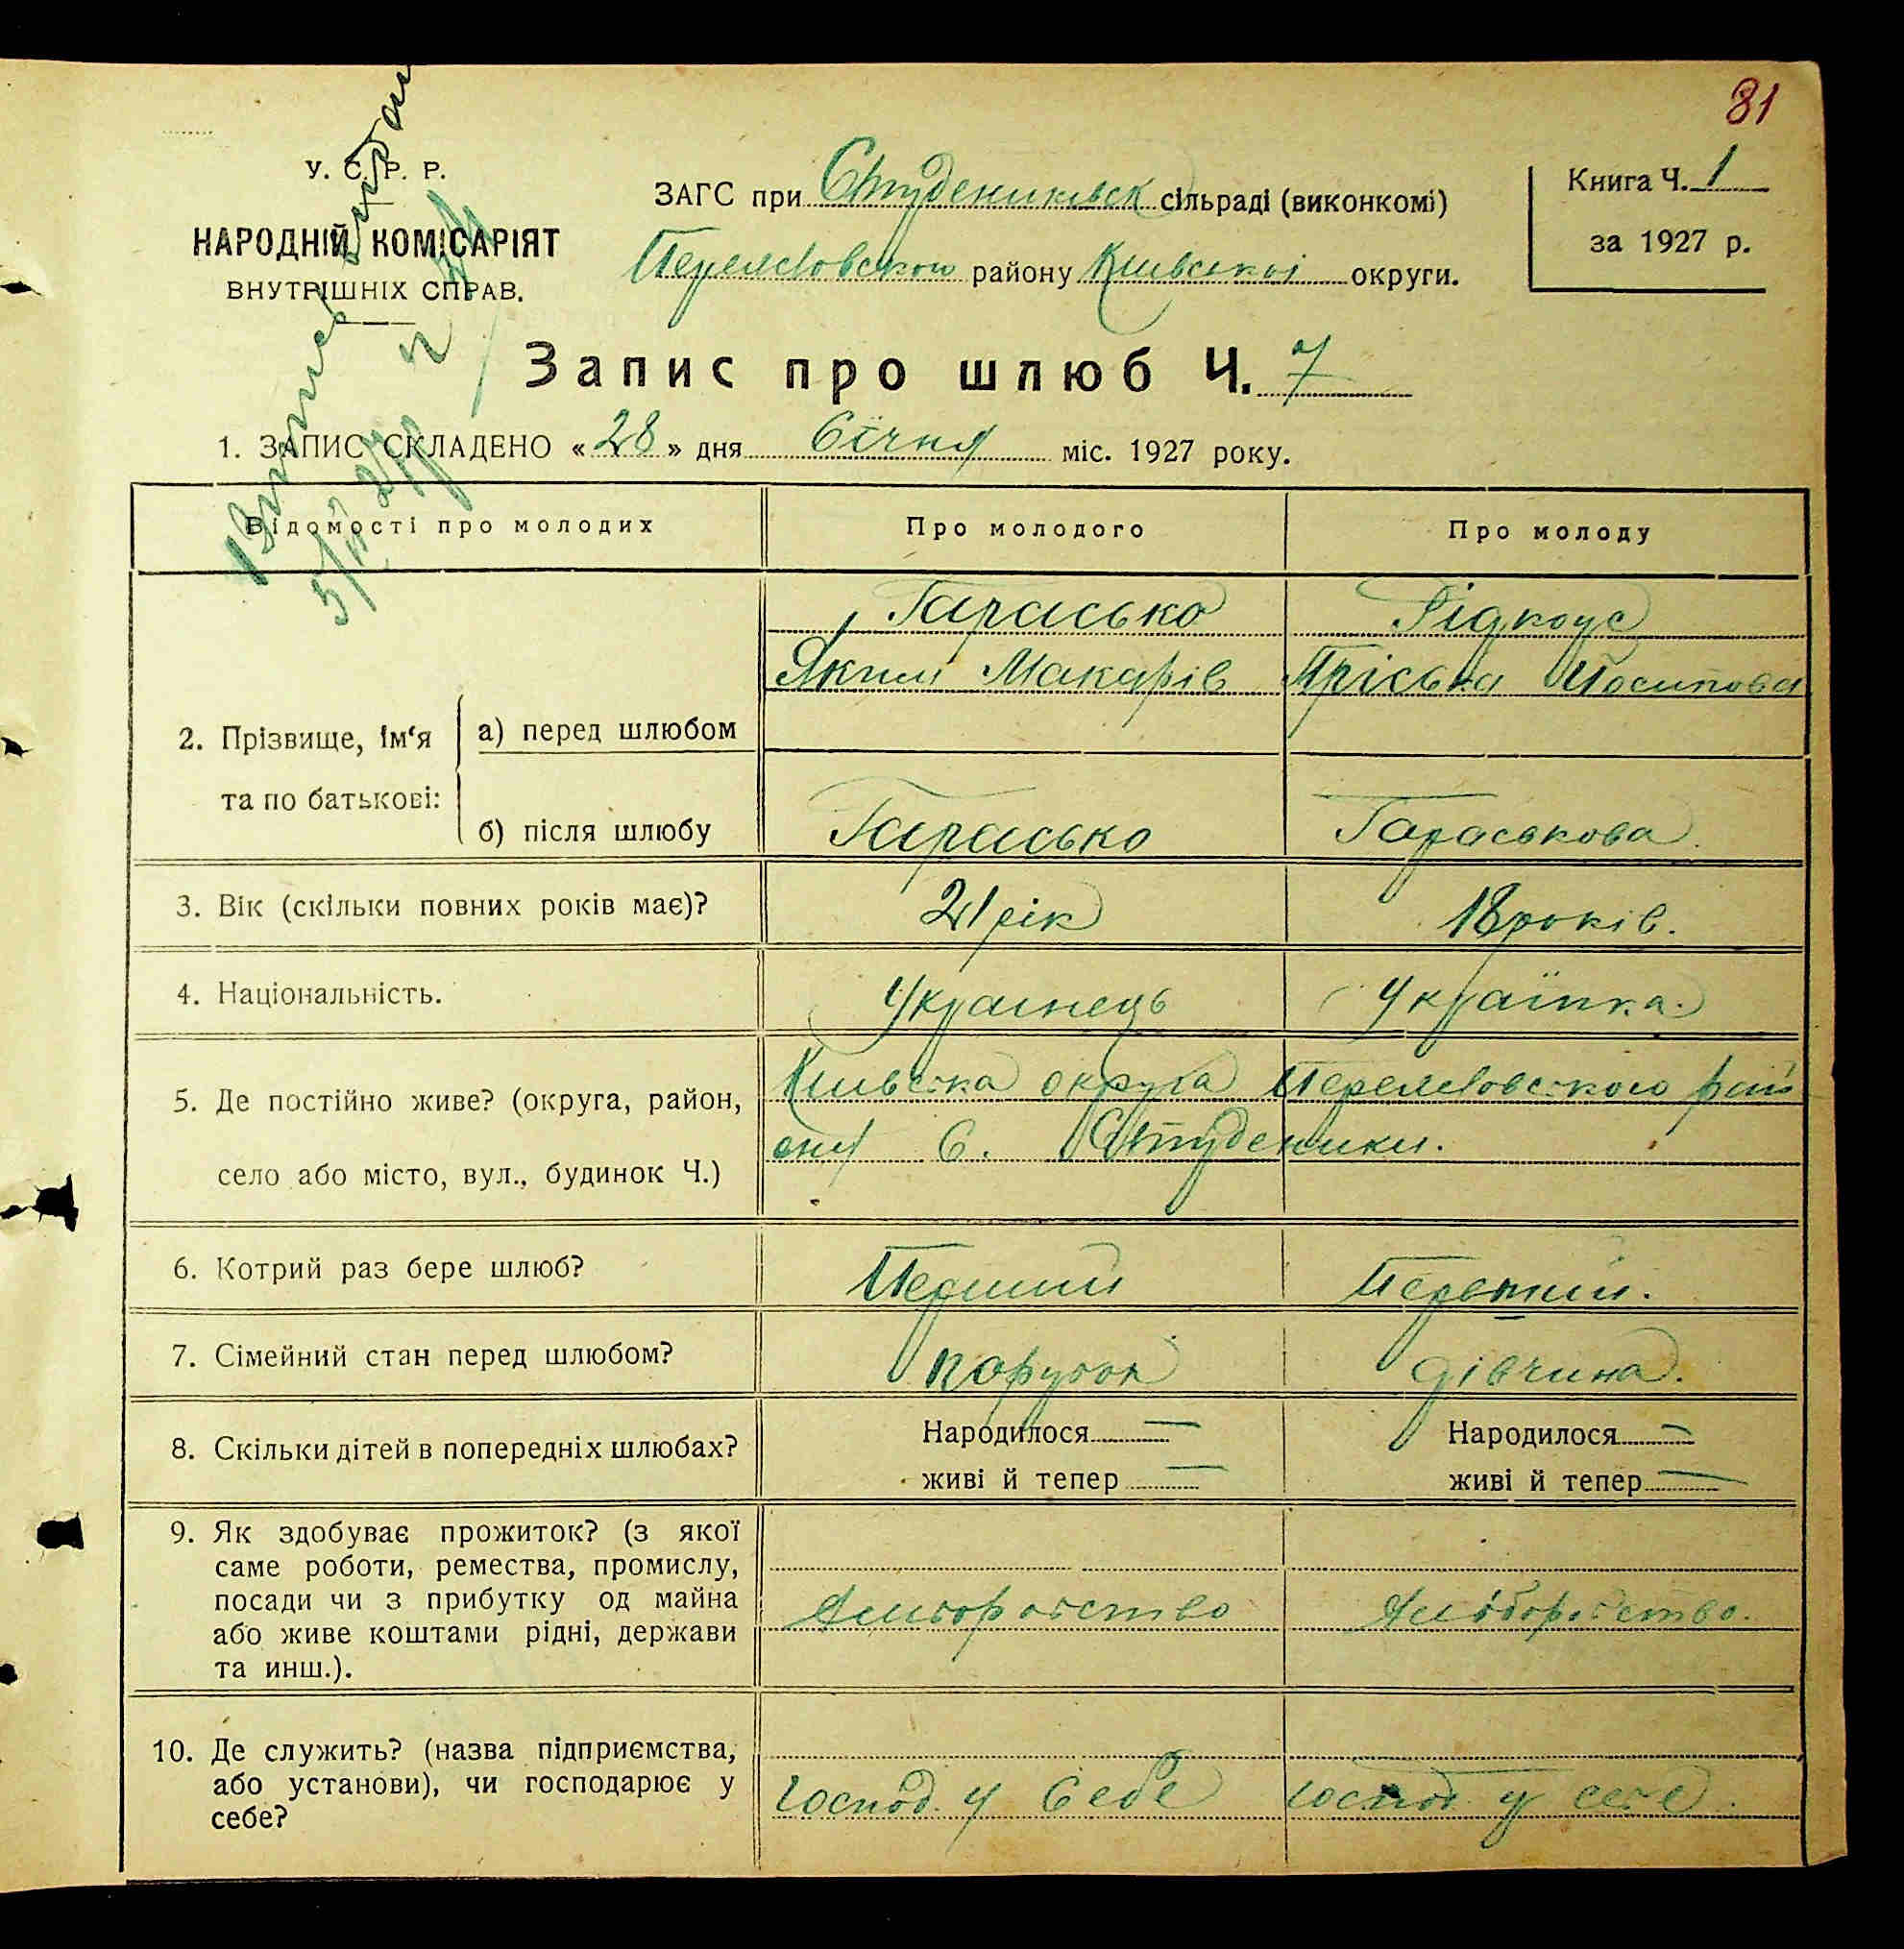 81
У. С. Р. Р.
НАРОДНІЙ КОМІСАРІЯТ
ВНУТРІШНІХ СПРАВ.
ЗАГС при Студениківськ сільраді (виконкомі)
району Київської округи.
Книга Ч. 1
за 1927 р.
Запис про шлюб Ч. 7
1. ЗАПИС СКЛАДЕНО «28» дня Січня міс. 1927 року.
Відомості про молодих
Про молодого
Про молоду
2. Прізвище, ім'я та по батькові:
а) перед шлюбом
Гарасько
Яким Макарів
Підкоус
Пріська Йосипова
б) після шлюбу
Гарасько
Гараськова.
3. Вік (скільки повних років має)?
21 рік
18 років.
4. Національність.
Украінець
Українка.
5. Де постійно живе? (округа, район,
село або місто, вул., будинок Ч.)
Київська округа рай
ону С. Студеники.
6. Котрий раз бере шлюб?
Перший
Первший.
7. Сімейний стан перед шлюбом?
дівчина.
8. Скільки дітей в попередніх шлюбах?
Народилося —
живі й тепер —
Народилося —
живі й тепер —
9. Як здобуває прожиток? (з якої
саме роботи, ремества, промислу,
посади чи з прибутку од майна
або живе коштами рідні, держави
та инш.).
10. Де служить? (назва підприємства,
або установи), чи господарює у
себе?
Господ. у себе
господ. у себе.